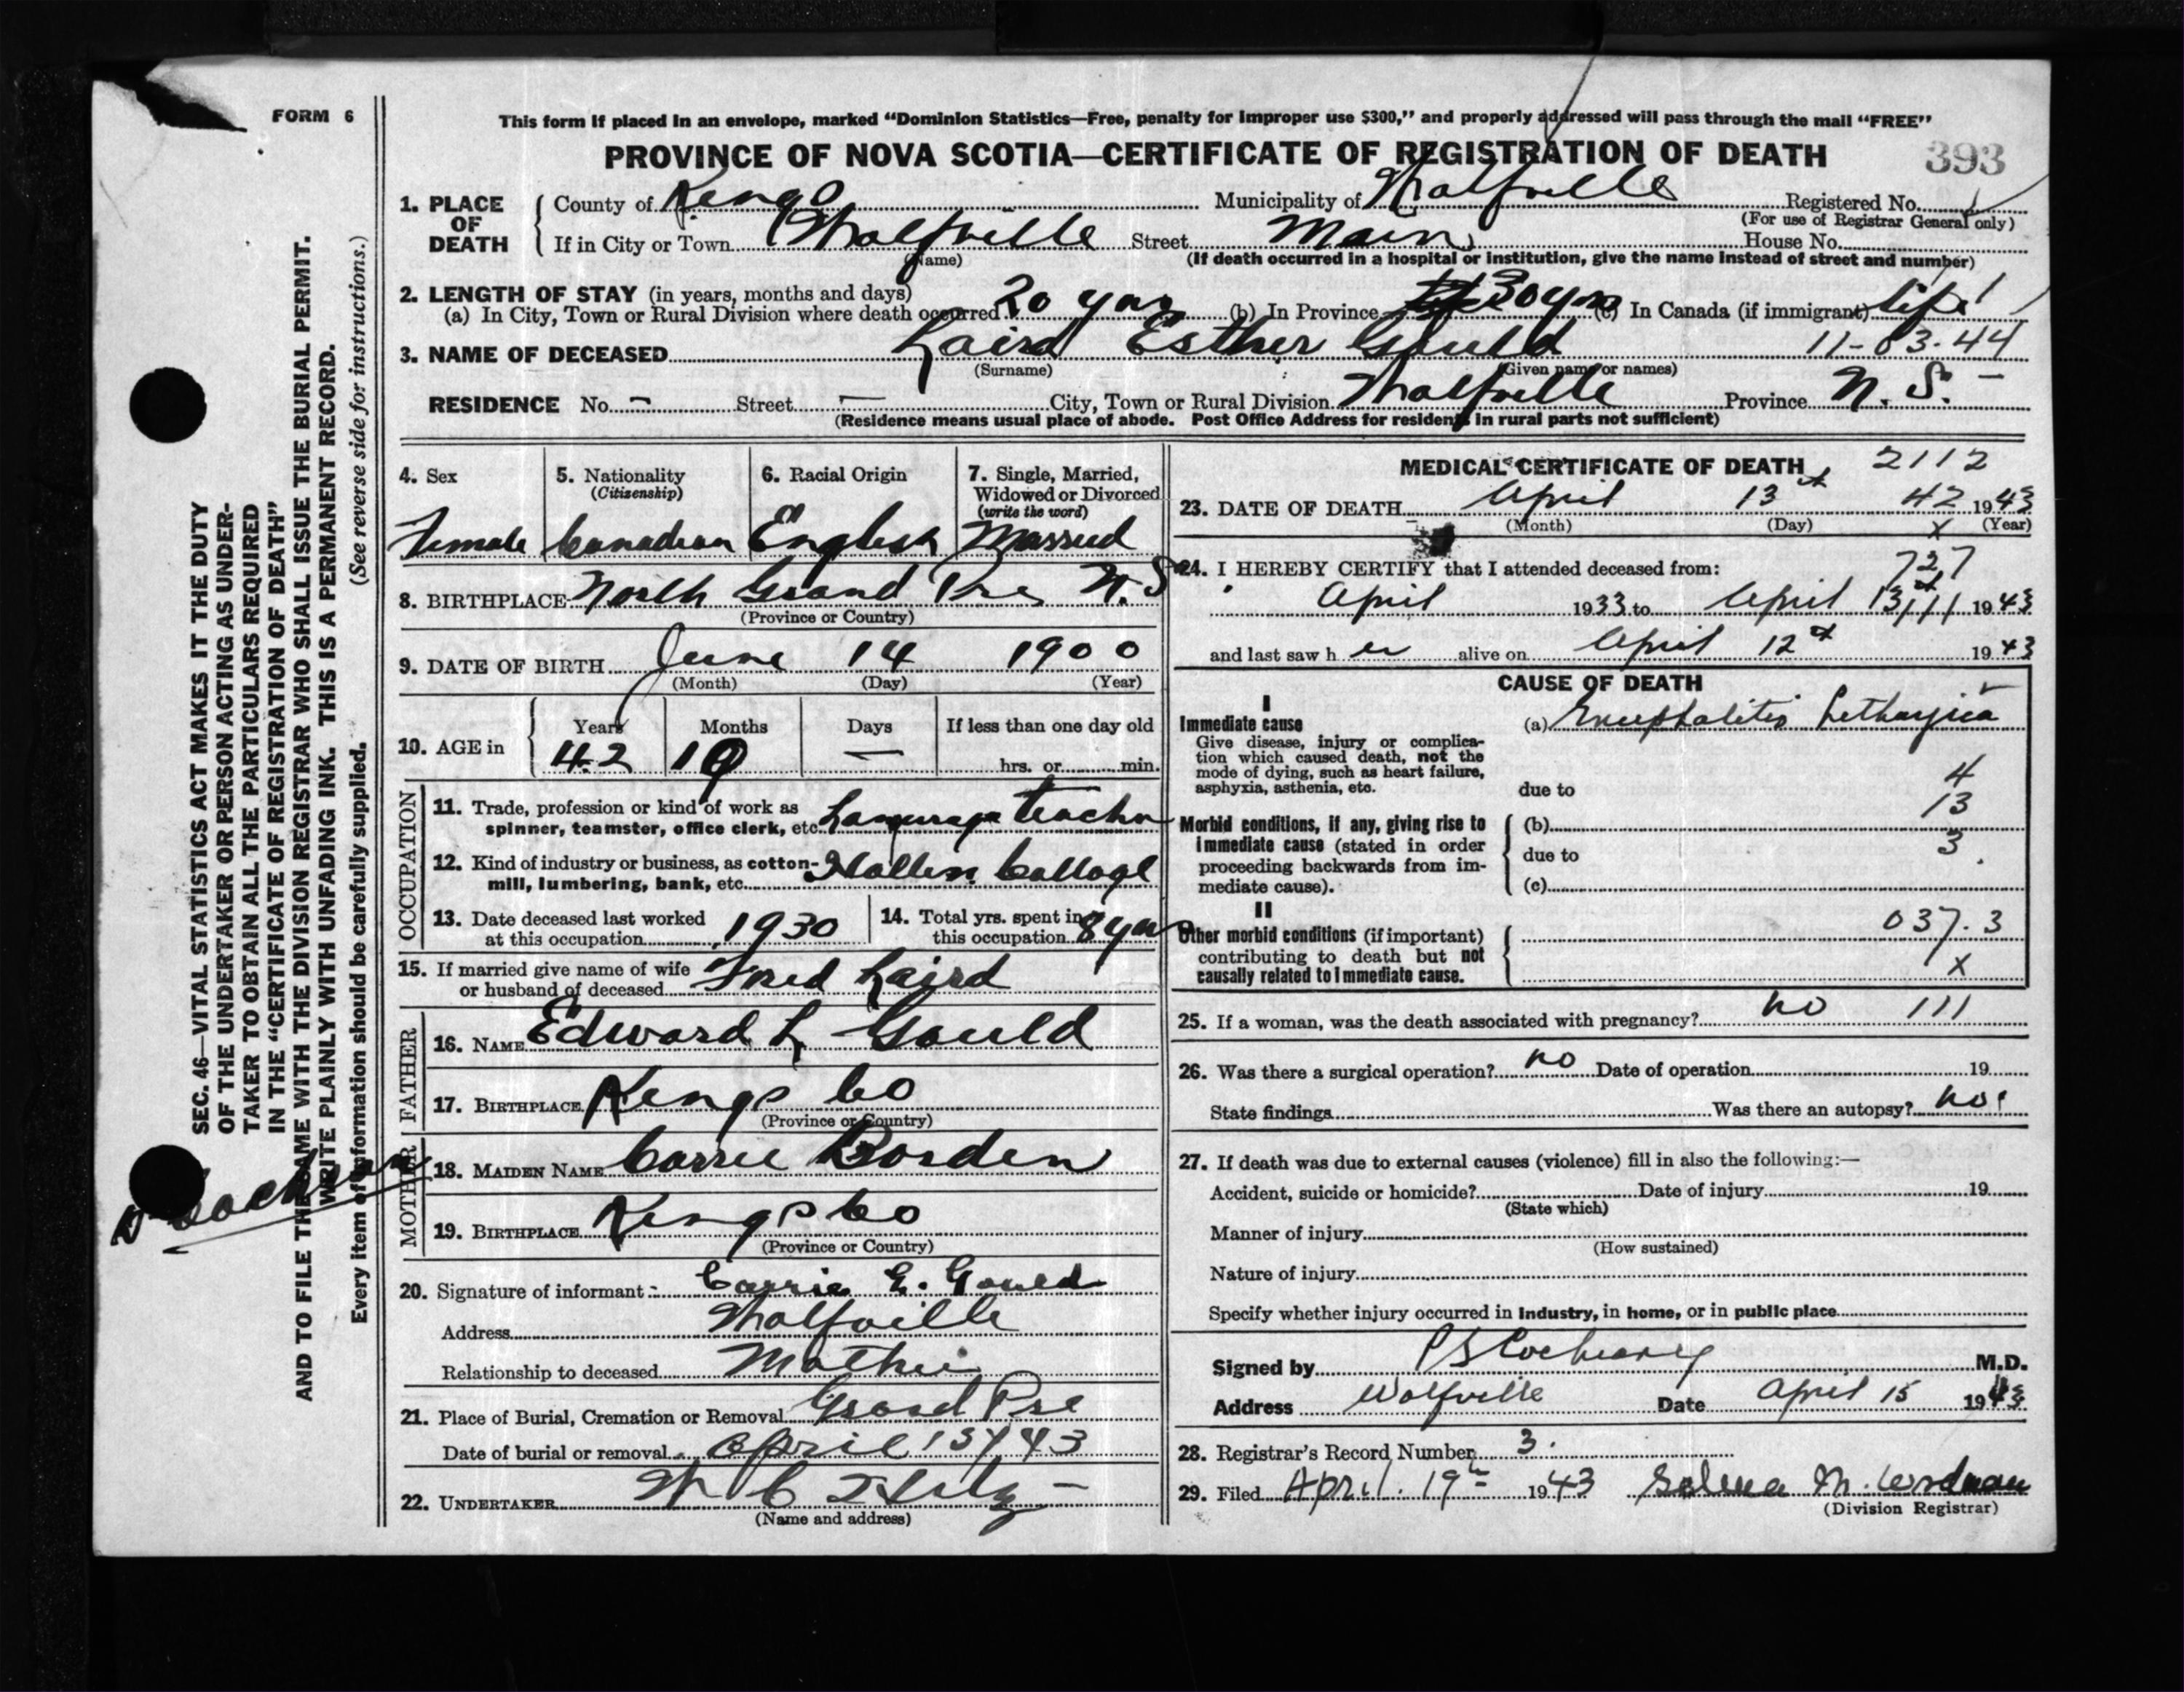 FORM 6
This form if placed in an envelope, marked “Dominion Statistics—Free, penalty for improper use $300,” and properly addressed will pass through the mail “FREE”
PROVINCE OF NOVA SCOTIA—CERTIFICATE OF REGISTRATION OF DEATH 393
1. PLACE OF DEATH County of Kings Municipality of Wolfville Registered No.
(For use of Registrar General only)
If in City or Town Wolfville Street Main House No.
(Name) (If death occurred in a hospital or institution, give the name instead of street and number)
2. LENGTH OF STAY (in years, months and days)
(a) In City, Town or Rural Division where death occurred 20 yrs (b) In Province 30 yrs (c) In Canada (if immigrant) life
3. NAME OF DECEASED Laird Esther Gould 11-03-44
(Surname) (Given name or names)
RESIDENCE No. – Street – City, Town or Rural Division Wolfville Province N. S. –
(Residence means usual place of abode. Post Office Address for residents in rural parts not sufficient)
4. Sex Female
5. Nationality (Citizenship) Canadian
6. Racial Origin English
7. Single, Married, Widowed or Divorced (write the word) Married
8. BIRTHPLACE North Grand Pre, N.S
(Province or Country)
9. DATE OF BIRTH June 14 1900
(Month) (Day) (Year)
10. AGE in Years 42 Months 10 Days — If less than one day old hrs. or min.
OCCUPATION
11. Trade, profession or kind of work as spinner, teamster, office clerk, etc. Language teacher
12. Kind of industry or business, as cotton-mill, lumbering, bank, etc. College
13. Date deceased last worked at this occupation 1930
14. Total yrs. spent in this occupation 8 yrs
15. If married give name of wife or husband of deceased Fred Laird
FATHER
16. NAME Edward L Gould
17. BIRTHPLACE Kings Co
(Province or Country)
MOTHER
18. MAIDEN NAME Carrie Borden
19. BIRTHPLACE Kings Co
(Province or Country)
20. Signature of informant Carrie E. Gould
Address Wolfville
Relationship to deceased Mother
21. Place of Burial, Cremation or Removal Grand Pre
Date of burial or removal April 15/43
22. UNDERTAKER W C
(Name and address)
MEDICAL CERTIFICATE OF DEATH 2112
23. DATE OF DEATH April 13th 42 1943
(Month) (Day) x (Year)
24. I HEREBY CERTIFY that I attended deceased from: 727
April 1933 to April 13th 1943
and last saw h er alive on April 12th 1943
CAUSE OF DEATH
I
Immediate cause (a) Encephalitis Lethargica
Give disease, injury or complication which caused death, not the mode of dying, such as heart failure, asphyxia, asthenia, etc.
due to 4
13
Morbid conditions, if any, giving rise to immediate cause (stated in order proceeding backwards from immediate cause).
(b)
due to 3.
(c)
II
Other morbid conditions (if important) contributing to death but not causally related to immediate cause.
037.3
X
25. If a woman, was the death associated with pregnancy? no 111
26. Was there a surgical operation? no Date of operation 19
State findings Was there an autopsy? no
27. If death was due to external causes (violence) fill in also the following:—
Accident, suicide or homicide? Date of injury 19
(State which)
Manner of injury
(How sustained)
Nature of injury
Specify whether injury occurred in industry, in home, or in public place
Signed by M.D.
Address Wolfville Date April 15 1943
28. Registrar's Record Number 3.
29. Filed April. 19th 1943
(Division Registrar)
SEC. 46—VITAL STATISTICS ACT MAKES IT THE DUTY
OF THE UNDERTAKER OR PERSON ACTING AS UNDER-
TAKER TO OBTAIN ALL THE PARTICULARS REQUIRED
IN THE “CERTIFICATE OF REGISTRATION OF DEATH”
AND TO FILE THE SAME WITH THE DIVISION REGISTRAR WHO SHALL ISSUE THE BURIAL PERMIT.
WRITE PLAINLY WITH UNFADING INK. THIS IS A PERMANENT RECORD.
Every item of information should be carefully supplied. (See reverse side for instructions.)